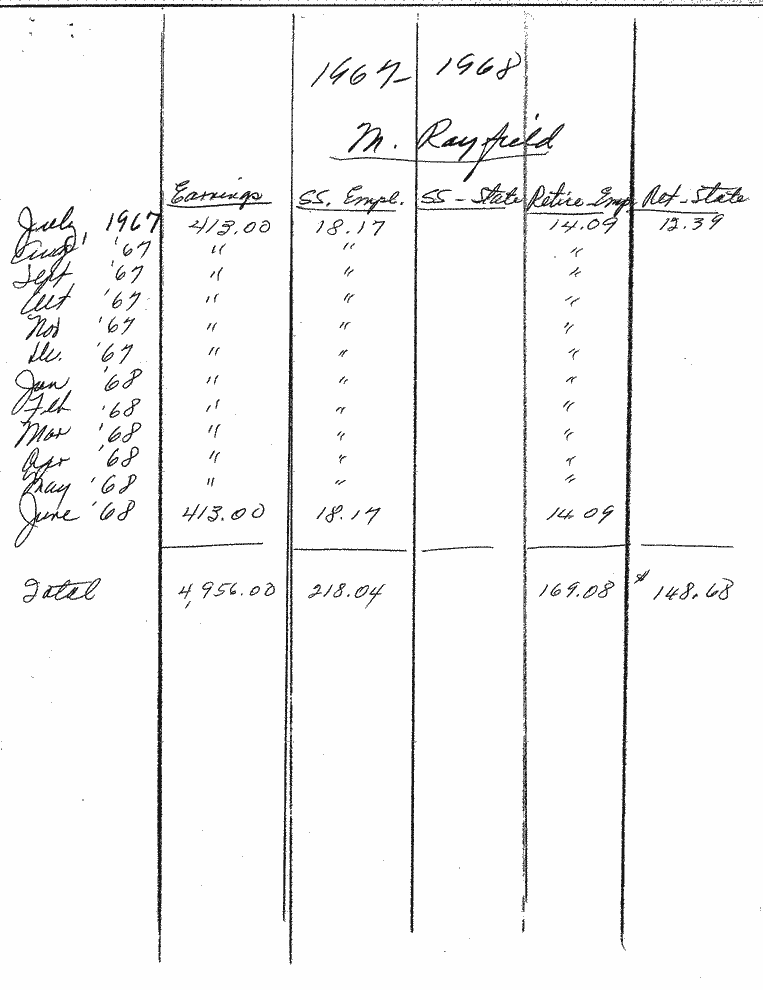 1967- 1968
M. Rayfield
Earnings SS. Empl. SS - State Retire Emp. Ret - State
July, 1967 413.00 18.17 14.09 12.39
Aug' '67 " " "
Sept '67 " " "
Oct '67 " " "
Nov '67 " " "
De. '67 " " "
Jan '68 " " "
Feb '68 " " "
Mar '68 " " "
Apr '68 " " "
May '68 " " "
June '68 413.00 18.17 14.09
Total 4,956.00 218.04 169.08 $ 148.68